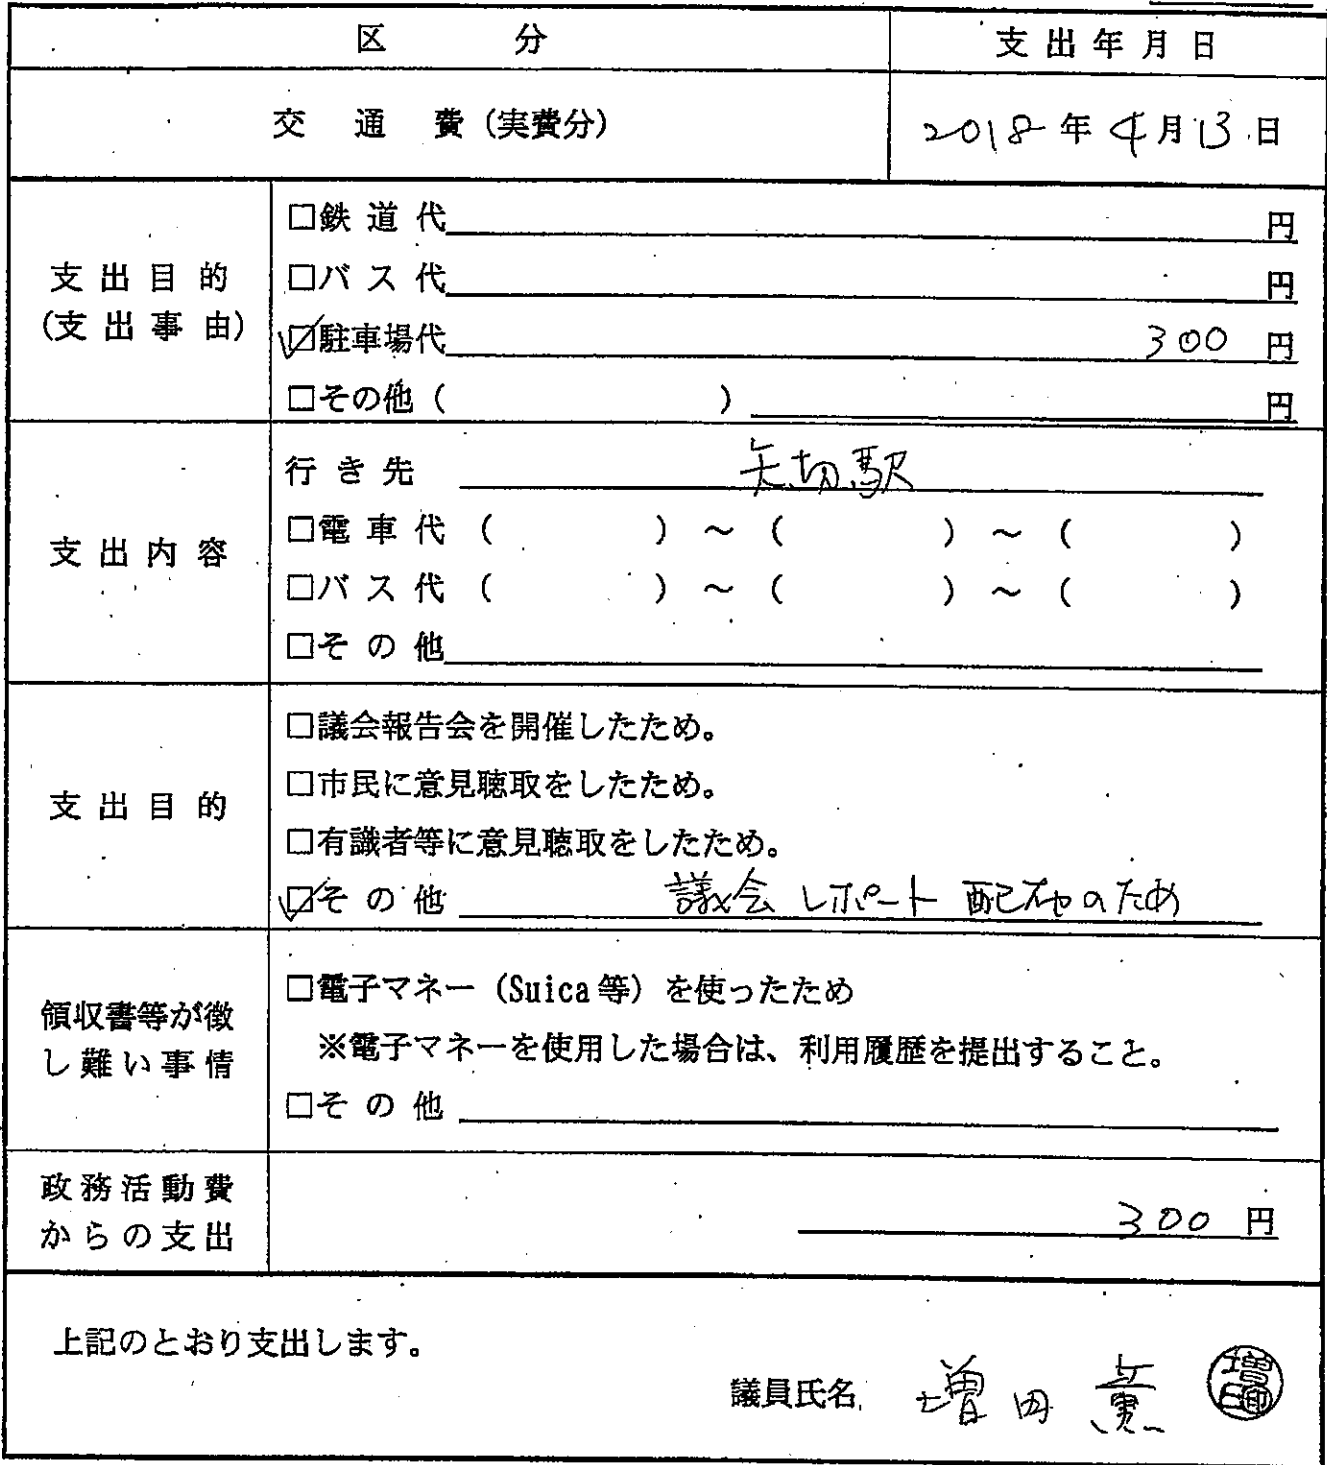 区 分 支出年月日
交通費(実費分) 2018年4月13日
支出目的
(支出事由)
□鉄道代 円
□バス代 円
☑駐車場代 300円
□その他( ) 円
支出内容
行き先 矢切駅
□電車代( )~( )~( )
□バス代( )~( )~( )
□その他
支出目的
□議会報告会を開催したため。
□市民に意見聴取をしたため。
□有識者等に意見聴取をしたため。
☑その他 議会レポート配布のため
領収書等が徴
し難い事情
□電子マネー(Suica等)を使ったため
※電子マネーを使用した場合は、利用履歴を提出すること。
□その他
政務活動費
からの支出
300円
上記のとおり支出します。
議員氏名 増田 薫 増田